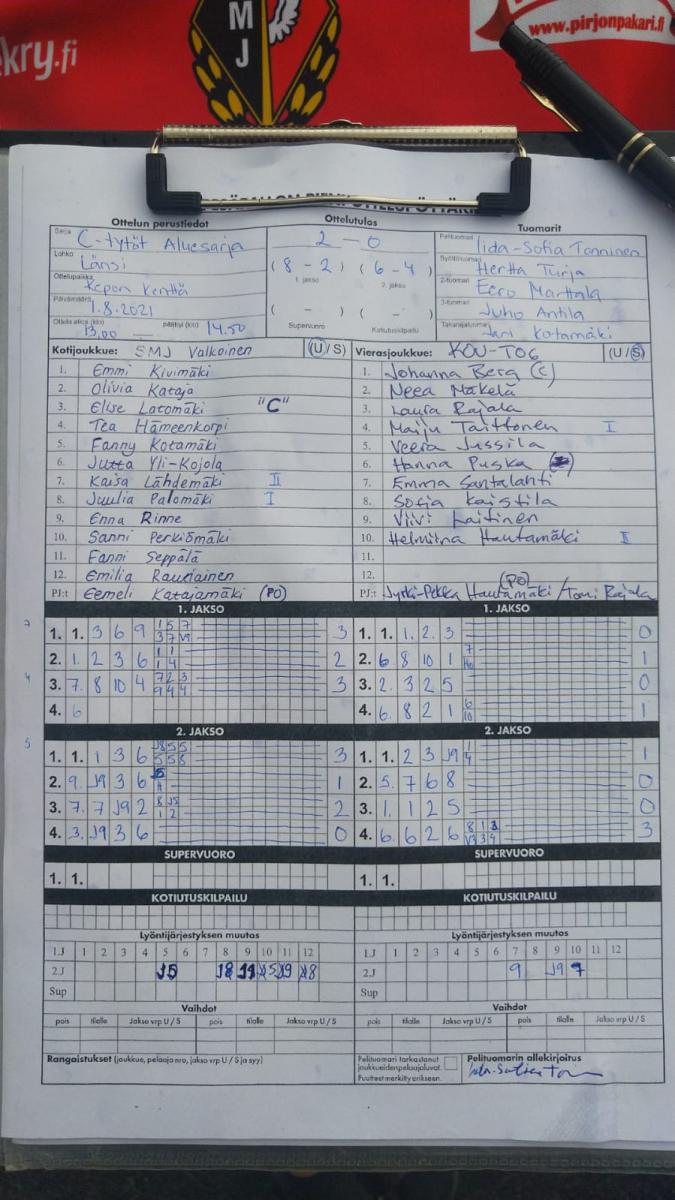 kry.fi
M
J
www.pirjonpakari.fi
Ottelun perustiedot
Ottelutulos
Tuomarit
Sarja C-tytöt Aluesarja
Lohko Länsi
Ottelupaikka Kepon Kenttä
Päivämäärä 1.8.2021
13.00 — päättyi (klo) 14.50
2 - 0
( 8 - 2 ) ( 6 - 4 )
1. jakso 2. jakso
( - ) ( - )
Supervuoro Kotiutuskilpailu
Pelituomari Iida-Sofia Tanninen
Syöttötuomari Hertta Turja
2-tuomari Eero Marttala
3-tuomari Juho Antila
Takarajatuomari Jani Kotamäki
Kotijoukkue: SMJ Valkoinen (U / S)
1. Emmi Kivimäki
2. Olivia Kataja
3. Elise Latomäki "C"
4. Tea Hämeenkorpi
5. Fanny Kotamäki
6. Jutta Yli-Kojola
7. Kaisa Lähdemäki II
8. Juulia Palomäki I
9. Enna Rinne
10. Sanni Perkiömäki
11. Fanni Seppälä
12. Emilia Rauniainen
PJ:t Eemeli Katajamäki (PO)
Vierasjoukkue: KOU-TO6 (U / S)
1. Johanna Berg (C)
2. Neea Mäkelä
3. Laura Rajala
4. Maiju Taittonen I
5. Veera Jussila
6. Hanna Puska
7. Emma Santalahti
8. Sofia Kaistila
9. Viivi Laitinen
10. Helmiina Hautamäki II
11.
12.
(PO)
PJ:t Jyrki-Pekka Hautamäki / Tomi Rajala
1. JAKSO
7 1. 1. 3 6 9 3
2. 1. 2 3 6 2
4 3. 7. 8 10 4 3
4. 6
1. JAKSO
1. 1. 1. 2. 3 0
2. 6 8 10 1 1
3. 2. 3 2 5 0
4. 6. 8 2 1 1
2. JAKSO
5 1. 1. 1 3 6 3
2. 9. J9 3 6 1
3. 7. 7 J9 2 2
4. 3. J9 3 6 0
2. JAKSO
1. 1. 2 3 J9 1
2. 5. 7 6 8 0
3. 1. 1 2 5 0
4. 6. 6 2 6 3
SUPERVUORO
1. 1.
SUPERVUORO
1. 1.
KOTIUTUSKILPAILU
KOTIUTUSKILPAILU
Lyöntijärjestyksen muutos
1.J 1 2 3 4 5 6 7 8 9 10 11 12
2.J J5
Sup
Lyöntijärjestyksen muutos
1.J 1 2 3 4 5 6 7 8 9 10 11 12
2.J 9 J9 7
Sup
Vaihdot
pois tilalle Jakso vrp U / S pois tilalle Jakso vrp U / S
Vaihdot
pois tilalle Jakso vrp U / S pois tilalle Jakso vrp U / S
Rangaistukset (joukkue, pelaaja nro, jakso vrp U / S ja syy)
Pelituomari tarkastanut
joukkueiden pelaajaluvat.
Puutteet merkitty erikseen.
Pelituomarin allekirjoitus